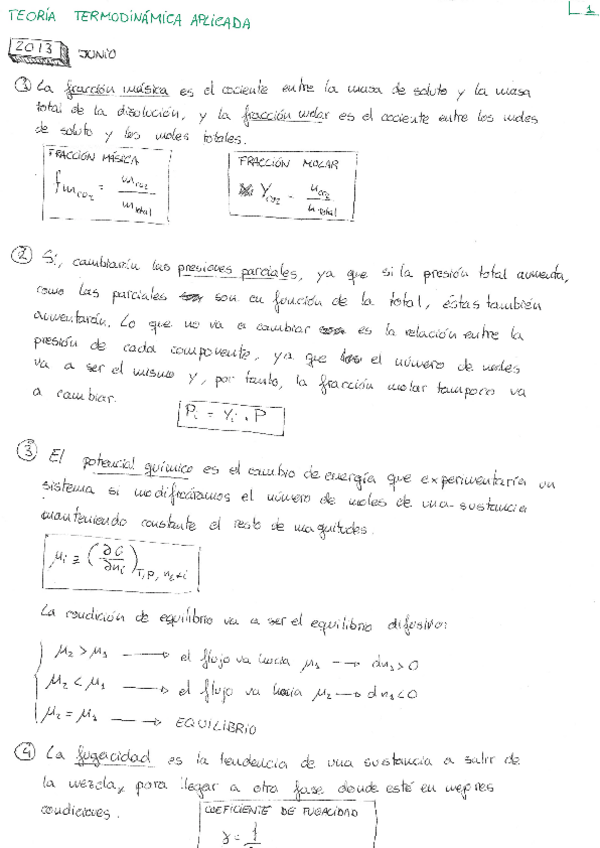 TEORÍA TERMODINÁMICA APLICADA
L 1
2013 JUNIO
① La fracción másica es el cociente entre la masa de soluto y la masa
total de la disolución, y la fracción molar es el cociente entre los moles
de soluto y los moles totales.
FRACCIÓN MÁSICA
fm_CO2 = m_CO2 / m_total
FRACCIÓN MOLAR
Y_CO2 = n_CO2 / n_total
② Sí, cambiarían las presiones parciales, ya que si la presión total aumenta,
como las parciales son en función de la total, éstas también
aumentarán. Lo que no va a cambiar es la relación entre la
presión de cada componente, ya que el número de moles
va a ser el mismo y, por tanto, la fracción molar tampoco va
a cambiar.
Pi = Yi · P
③ El potencial químico es el cambio de energía que experimentaría un
sistema si modificáramos el número de moles de una sustancia
manteniendo constante el resto de magnitudes.
μi ≡ (∂G/∂ni)T,P,n2≠i
La condición de equilibrio va a ser el equilibrio difusivo:
μ2 > μ1 → el flujo va hacia μ1 → dn1 > 0
μ2 < μ1 → el flujo va hacia μ2 → dn1 < 0
μ2 = μ1 → EQUILIBRIO
④ La fugacidad es la tendencia de una sustancia a salir de
la mezcla, para llegar a otra fase donde esté en mejores
condiciones.
COEFICIENTE DE FUGACIDAD
γ = f